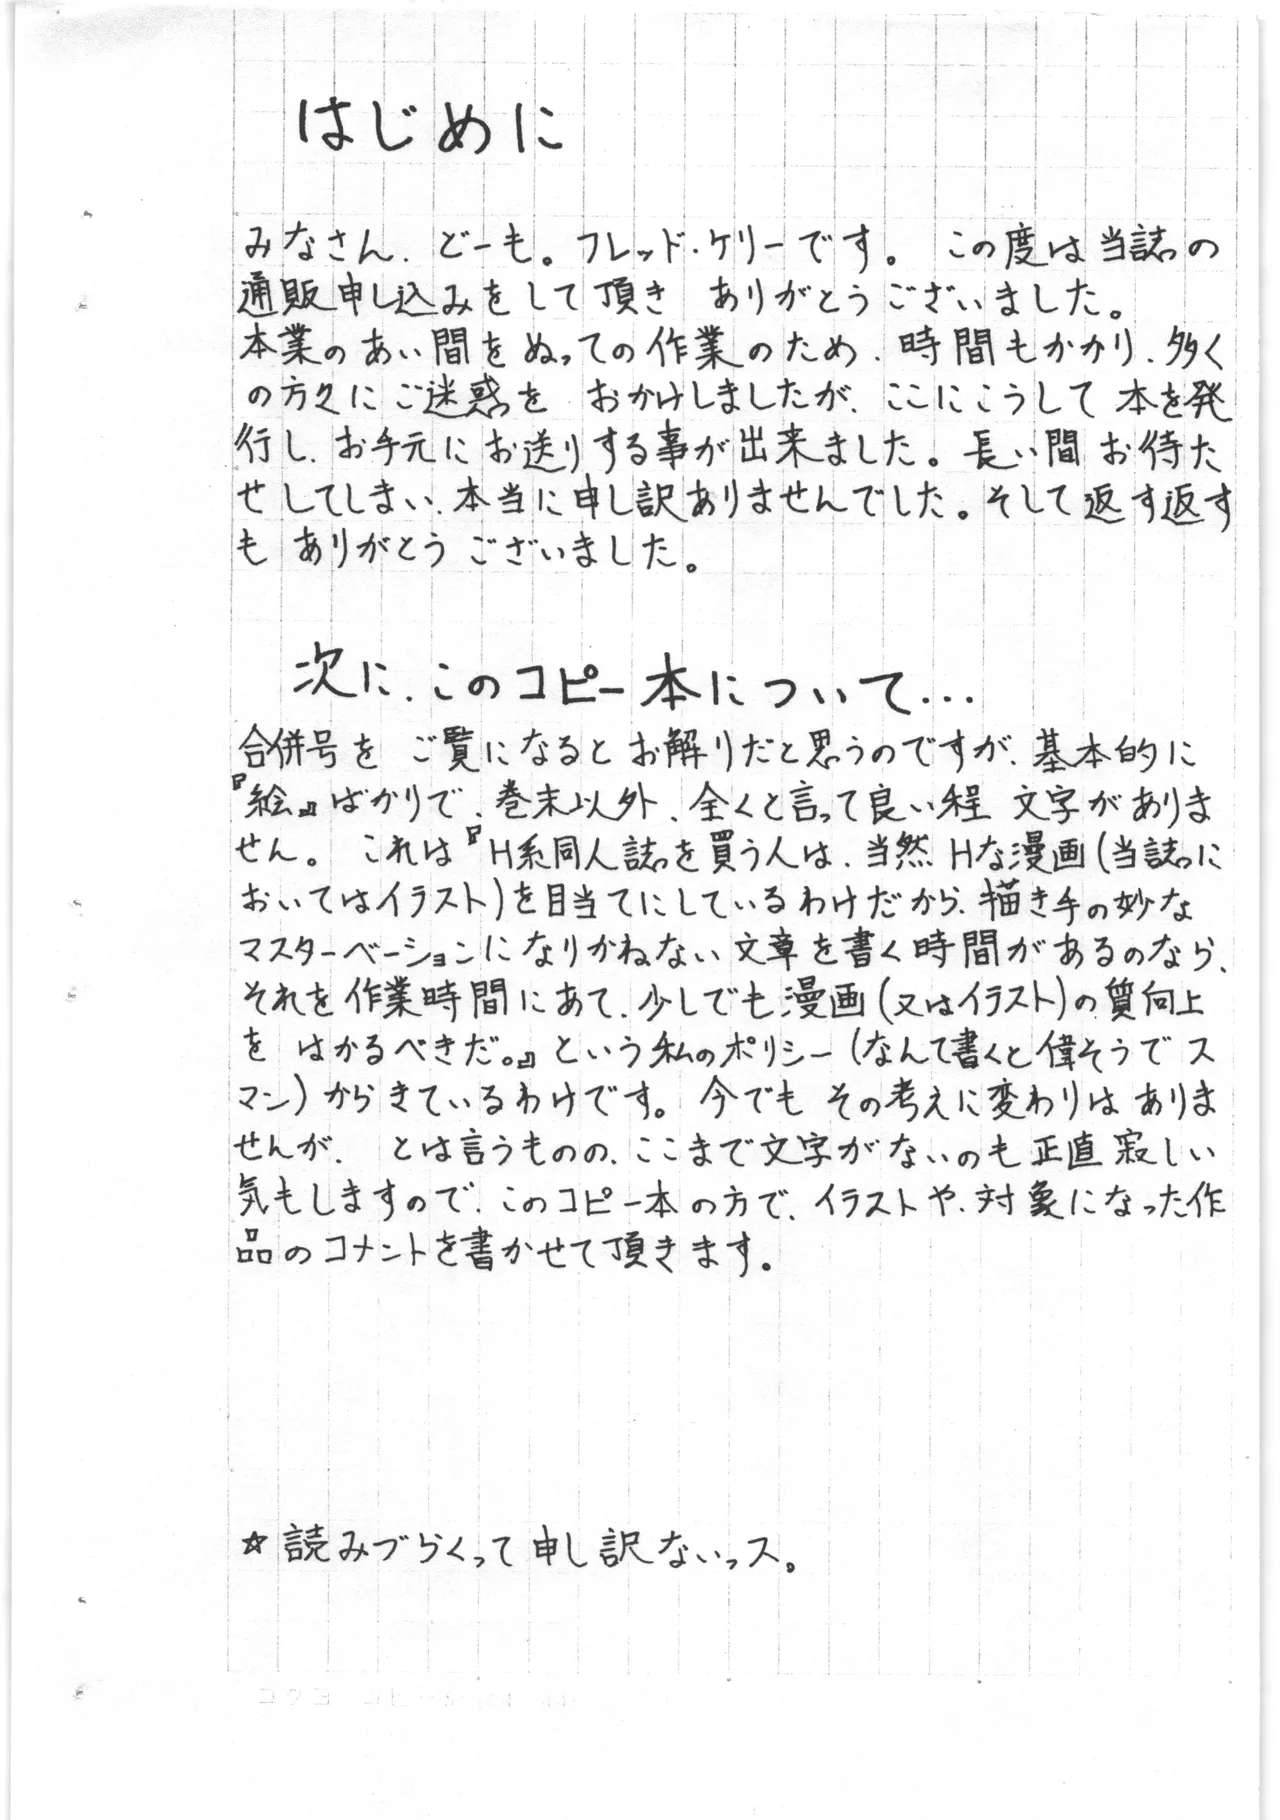 はじめに
みなさん、どーも。フレッド・ケリーです。 この度は当誌の
通販申し込みをして頂き ありがとうございました。
本業のあい間をぬっての作業のため、時間もかかり、多く
の方々にご迷惑を おかけしましたが、ここにこうして本を発
行し、お手元にお送りする事が出来ました。長い間お待た
せしてしまい、本当に申し訳ありませんでした。そして返す返す
も ありがとうございました。
次に、このコピー本について...
合併号を ご覧になるとお解りだと思うのですが、基本的に
『絵』ばかりで、巻末以外、全くと言って良い程 文字がありま
せん。 これは『H系同人誌を買う人は、当然Hな漫画(当誌に
おいてはイラスト)を目当てにしているわけだから、描き手の妙な
マスターベーションになりかねない文章を書く時間があるのなら、
それを作業時間にあて、少しでも漫画(又はイラスト)の質向上
を はかるべきだ。』という私のポリシー(なんて書くと偉そうでス
マン)からきているわけです。今でも その考えに変わりは ありま
せんが、 とは言うものの、ここまで文字がないのも正直寂しい
気もしますので、このコピー本の方で、イラストや、対象になった作
品のコメントを書かせて頂きます。
☆読みづらくって申し訳ないっス。